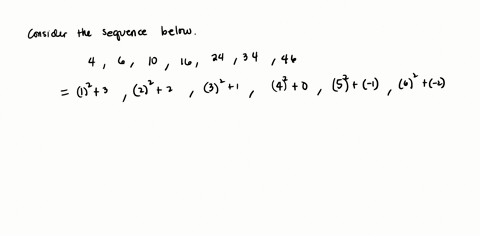 Consider the sequence below.
4 , 6 , 10 , 16 , 24 , 34 , 46
= (1)² + 3 , (2)² + 2 , (3)² + 1 , (4)² + 0 , (5)² + (-1) , (6)² + (-2)